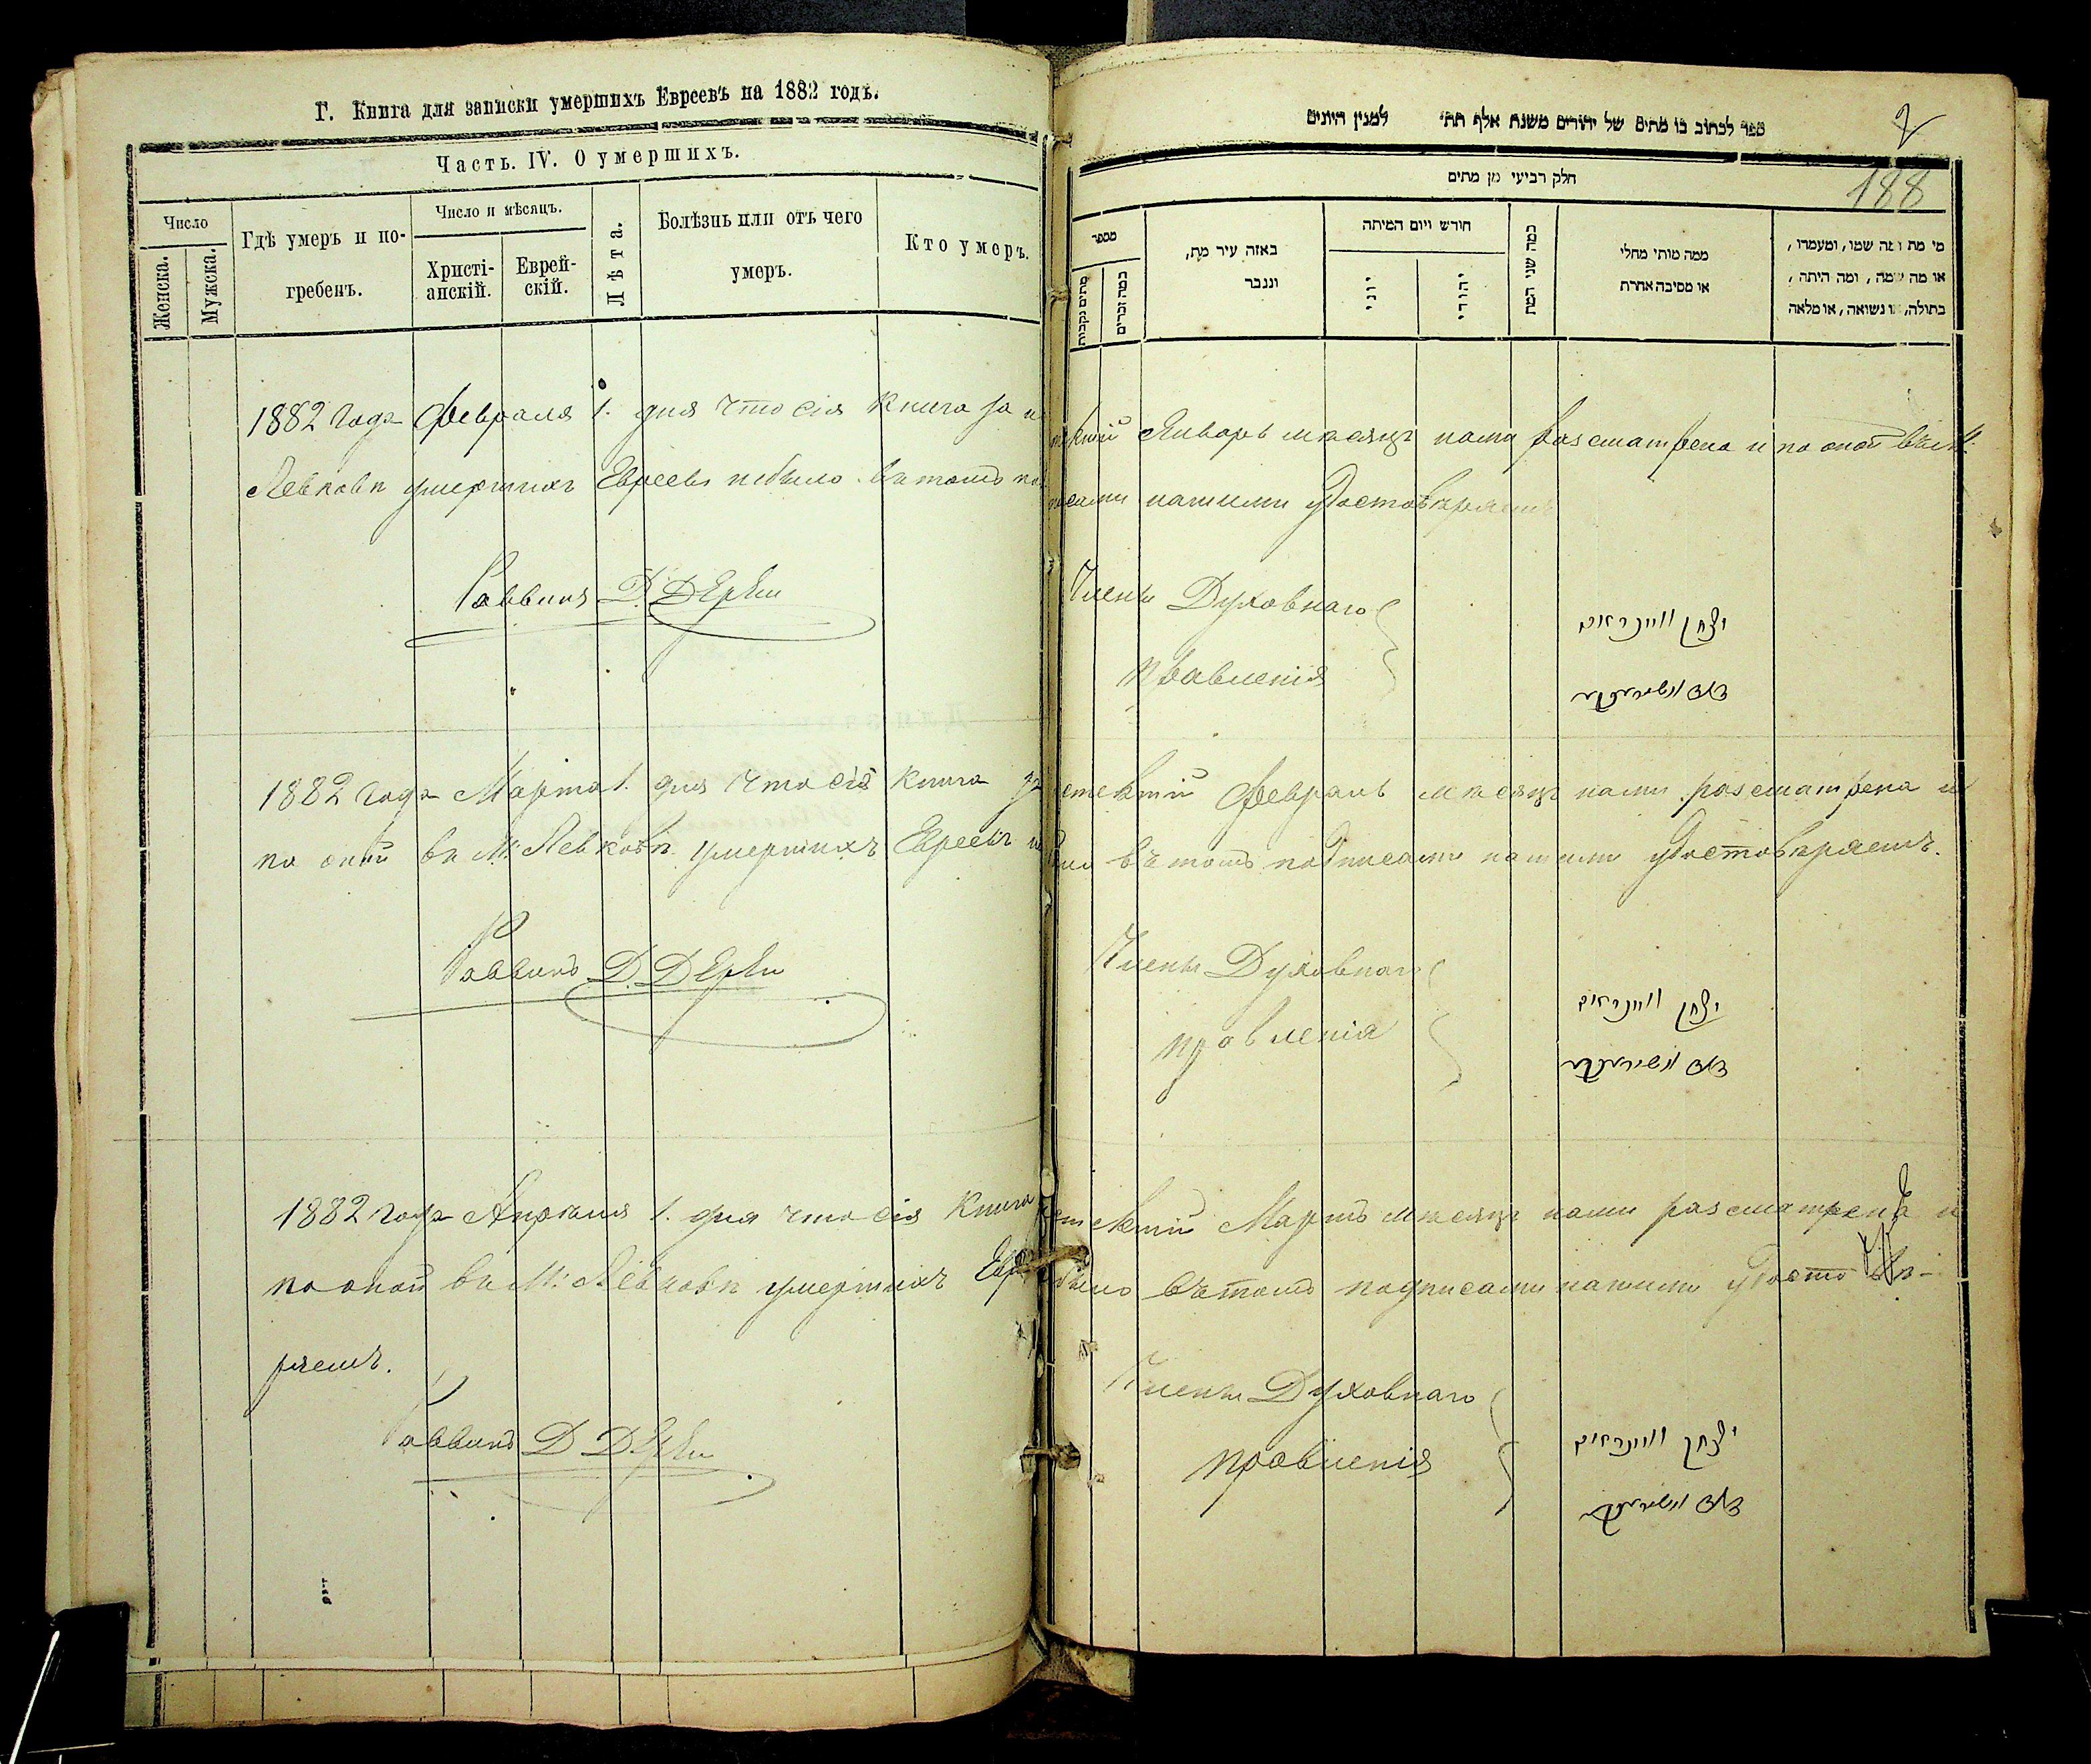 Г. Книга для записки умершихъ Евреевъ на 1882 годъ.
Часть. IV. О умершихъ.
Число
Женска.
Мужска.
Гдѣ умеръ и по-
гребенъ.
Число и мѣсяцъ.
Христі-
анскій.
Еврей-
скій.
Лѣта.
Болѣзнь или отъ чего
умеръ.
Кто умеръ.
ספר לכתוב בו מתים של יהודים משנת אלף תת״ למנין היונים
2
188
חלק רביעי מן מתים
מספר
מתים נקבות
כמה זכרים
באזה עיר מת,
ונגבר
חורש ויום המיתה
יוני
יהודי
כמה שני המת
ממה מותי מחלי
או מסיבה אחרת
מי מת ומה שמו, ומעמדו,
או מה שמה, ומה היתה,
בתולה, או נשואה, או מלאה
1882 года Февраля 1. дня что сія книга за истекшій Январь мѣсяцъ нами разсматрена и по оной въ м:
Левковѣ умершихъ Евреевъ небыло въ томъ подписами нашими удостовѣряемъ
Раввинъ Д.
Члены Духовнаго
Правленія
יצחק
1882 года Марта 1. дня что сія книга за истекшій Февраль мѣсяцъ нами разсматрена и
по оной въ М: Левковѣ умершихъ Евреевъ небыло въ томъ подписами нашими удостовѣряемъ.
Раввинъ Д.
Члены Духовнаго
правленія
יצחק
1882 года Апрѣля 1. дня что сія книга истекшій Мартъ мѣсяцъ нами разсматрена и
по оной въ М: Левковѣ умершихъ Евр небыло въ томъ подписами нашими удостовѣ-
ряемъ.
Раввинъ Д
Члены Духовнаго
правленія
יצחק